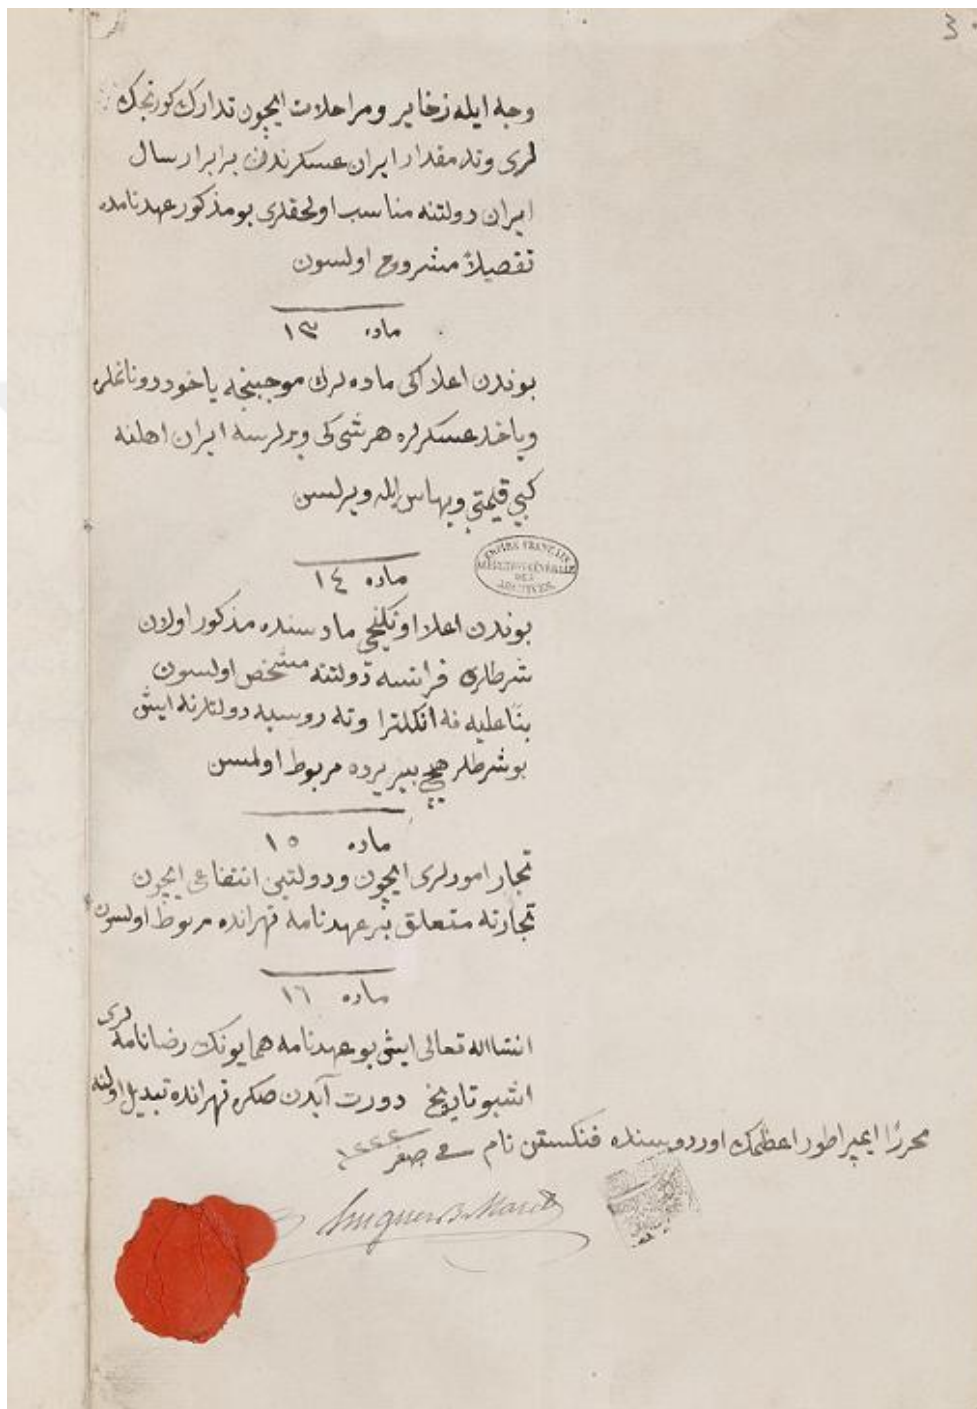 وجه ايله زخاير و مراحلات ايچون تدارك كورنجك
لرى وتد مقدار ايران عسكرندن برابر ارسال
ايران دولتنه مناسب اولحقلرى بو مذكور عهدنامده
تفصيلاً مشروح اولسون
ماده ١٣
بوندن اعلاكى ماده لرك موجبنجه ياخود دونانغلره
وياخد عسكرلره هر شى كى ويرلرسه ايران اهلنه
كبي قيمتي وبهاس ايله ويرلسن
EMPIRE FRANÇAIS
DES
ARCHIVES
ماده ١٤
بوندن اعلا اونيكنجي مادسنده مذكور اولان
شرطلرى فرانسه دولتنه مشخص اولسون
بناعليه نه انكلترا ونه روسيه دولتلرنه ايش
بو شرطلر هيچ بير يرده مربوط اولمسن
ماده ١٥
تجار امورلرى ايچون ودولتين انتفاعى ايچون
تجارته متعلق بر عهدنامه تهرانده مربوط اولسون
ماده ١٦
انشاالله تعالى ايش بو عهدنامه همايونك رضانامه لرى
اشبو تاريخ دورت آيدن صكره تهرانده تبديل اولنه
محررًا ايمپراطور اعظمك اوردوسنده فنكستن نام في صفر ١٢٢٢
Hugues B. Maret